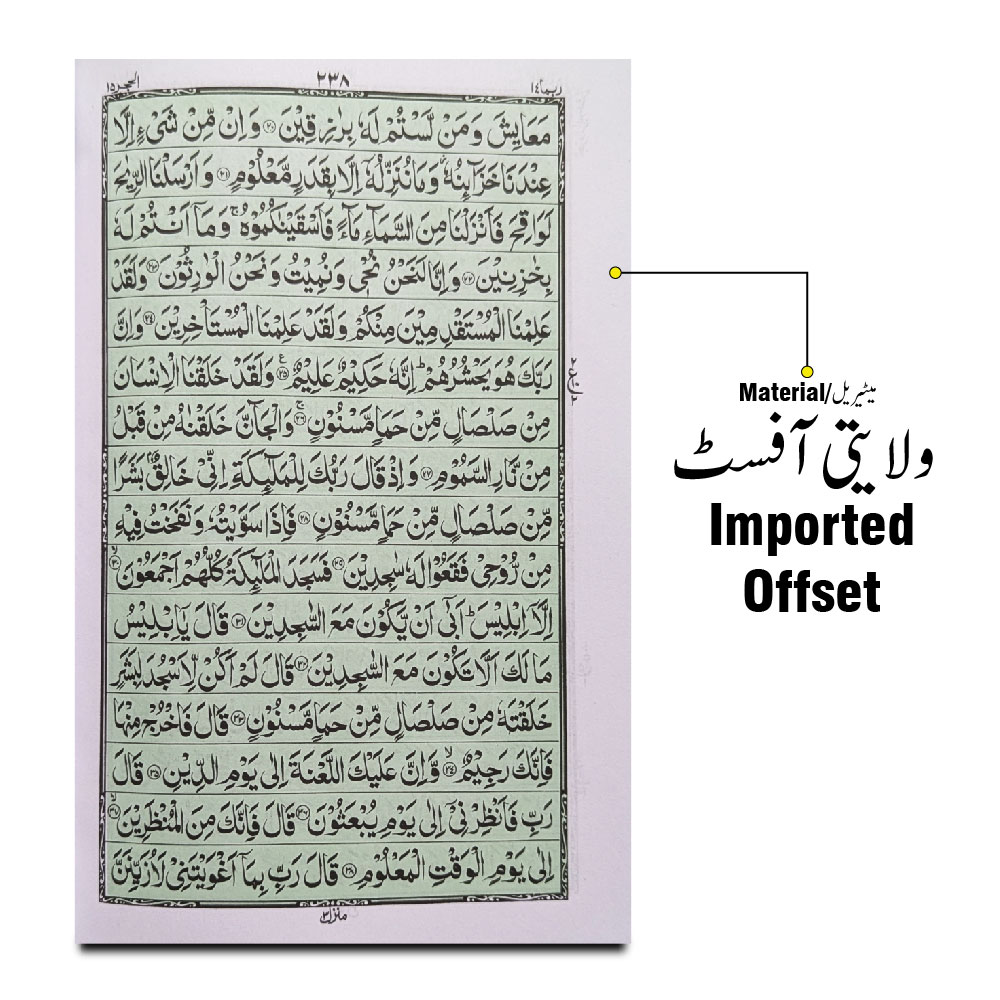 ربما ١٤
٢٣٨
الحجر ١٥
مَعَايِشَ وَمَنْ لَّسْتُمْ لَهٗ بِرٰزِقِيْنَ ﴿٢٠﴾ وَاِنْ مِّنْ شَىْءٍ اِلَّا
عِنْدَنَا خَزَآئِنُهٗ وَمَا نُنَزِّلُهٗۤ اِلَّا بِقَدَرٍ مَّعْلُوْمٍ ﴿٢١﴾ وَاَرْسَلْنَا الرِّيٰحَ
لَوَاقِحَ فَاَنْزَلْنَا مِنَ السَّمَآءِ مَآءً فَاَسْقَيْنٰكُمُوْهُ ۚ وَمَاۤ اَنْتُمْ لَهٗ
بِخٰزِنِيْنَ ﴿٢٢﴾ وَاِنَّا لَنَحْنُ نُحْىٖ وَنُمِيْتُ وَنَحْنُ الْوٰرِثُوْنَ ﴿٢٣﴾ وَلَقَدْ
عَلِمْنَا الْمُسْتَقْدِمِيْنَ مِنْكُمْ وَلَقَدْ عَلِمْنَا الْمُسْتَاْخِرِيْنَ ﴿٢٤﴾ وَاِنَّ
رَبَّكَ هُوَ يَحْشُرُهُمْ ؕ اِنَّهٗ حَكِيْمٌ عَلِيْمٌ ﴿٢٥﴾ ع وَلَقَدْ خَلَقْنَا الْاِنْسَانَ
مِنْ صَلْصَالٍ مِّنْ حَمَاٍ مَّسْنُوْنٍ ﴿٢٦﴾ ۚ وَالْجَآنَّ خَلَقْنٰهُ مِنْ قَبْلُ
مِنْ نَّارِ السَّمُوْمِ ﴿٢٧﴾ وَاِذْ قَالَ رَبُّكَ لِلْمَلٰٓئِكَةِ اِنِّىْ خَالِقٌۢ بَشَرًا
مِّنْ صَلْصَالٍ مِّنْ حَمَاٍ مَّسْنُوْنٍ ﴿٢٨﴾ فَاِذَا سَوَّيْتُهٗ وَنَفَخْتُ فِيْهِ
مِنْ رُّوْحِىْ فَقَعُوْا لَهٗ سٰجِدِيْنَ ﴿٢٩﴾ فَسَجَدَ الْمَلٰٓئِكَةُ كُلُّهُمْ اَجْمَعُوْنَ ﴿٣٠﴾ ۙ
اِلَّاۤ اِبْلِيْسَ ؕ اَبٰٓى اَنْ يَّكُوْنَ مَعَ السّٰجِدِيْنَ ﴿٣١﴾ قَالَ يٰۤاِبْلِيْسُ
مَا لَكَ اَلَّا تَكُوْنَ مَعَ السّٰجِدِيْنَ ﴿٣٢﴾ قَالَ لَمْ اَكُنْ لِّاَسْجُدَ لِبَشَرٍ
خَلَقْتَهٗ مِنْ صَلْصَالٍ مِّنْ حَمَاٍ مَّسْنُوْنٍ ﴿٣٣﴾ قَالَ فَاخْرُجْ مِنْهَا
فَاِنَّكَ رَجِيْمٌ ﴿٣٤﴾ ۙ وَّاِنَّ عَلَيْكَ اللَّعْنَةَ اِلٰى يَوْمِ الدِّيْنِ ﴿٣٥﴾ قَالَ
رَبِّ فَاَنْظِرْنِىْۤ اِلٰى يَوْمِ يُبْعَثُوْنَ ﴿٣٦﴾ قَالَ فَاِنَّكَ مِنَ الْمُنْظَرِيْنَ ﴿٣٧﴾ ۙ
اِلٰى يَوْمِ الْوَقْتِ الْمَعْلُوْمِ ﴿٣٨﴾ قَالَ رَبِّ بِمَاۤ اَغْوَيْتَنِىْ لَاُزَيِّنَنَّ
منزل ٣
Material/میٹیریل
ولایتی آفسٹ
Imported
Offset